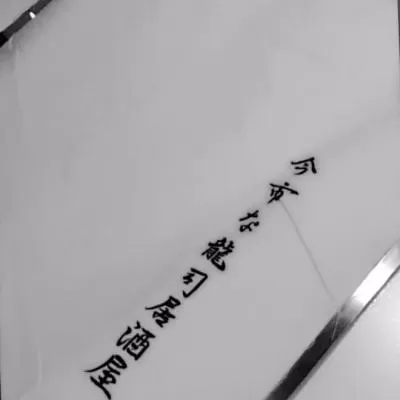 今市な龍司居酒屋